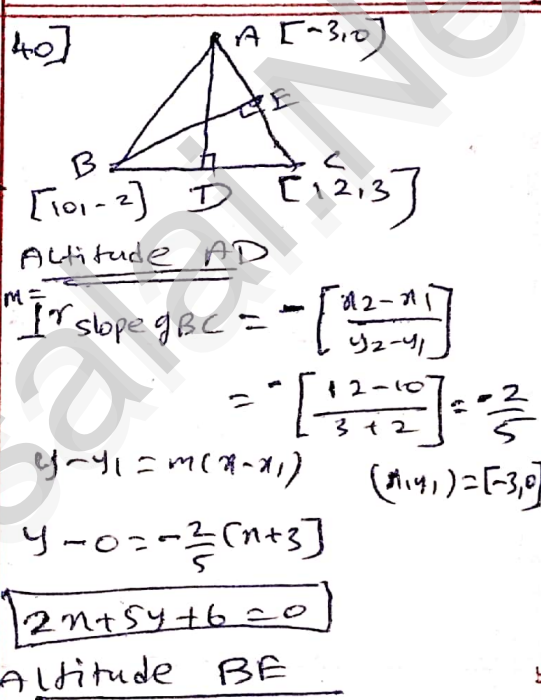 40]
A [-3,0]
E
B
C
[10,-2]
D
[12,3]
Altitude AD
m =
⊥r slope of BC = -[x2-x1 / y2-y1]
= -[12-10 / 3+2] = -2/5
y-y1 = m(x-x1)
(x1,y1) = [-3,0]
y-0 = -2/5 (x+3]
2x+5y+6 = 0
Altitude BE